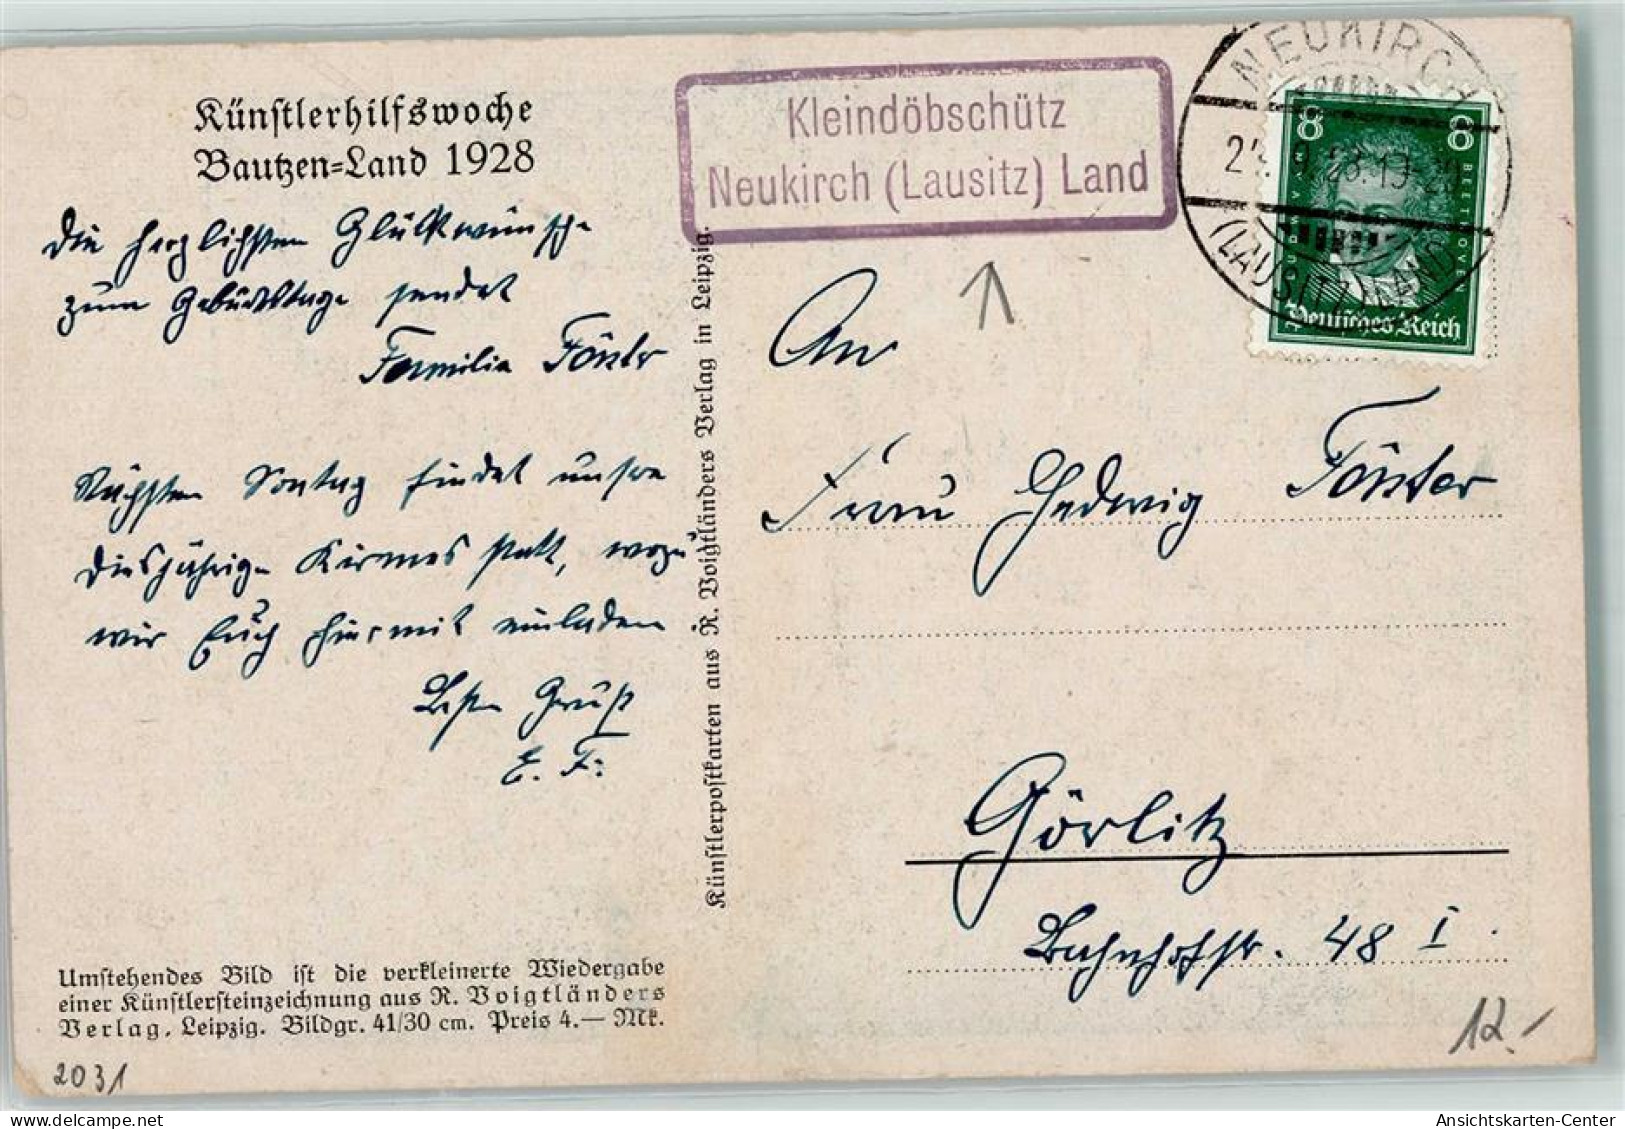 Künstlerhilfswoche
Bautzen=Land 1928
Die herzlichsten Glückwünsche
zum Geburtstage sendet
Familie Förster
Nächsten Sonntag findet unsere
diesjährige Kirmes statt, wozu
wir Euch hiermit einladen
Besten Gruß
E. F.
Umstehendes Bild ist die verkleinerte Wiedergabe
einer Künstlersteinzeichnung aus R. Voigtländers
Verlag, Leipzig. Bildgr. 41/30 cm. Preis 4.— Mk.
2031
Künstlerpostkarten aus R. Voigtländers Verlag in Leipzig.
Kleindöbschütz
Neukirch (Lausitz) Land
NEUKIRCH
28.19-20
(LAUSITZ) LAND
8 8
BEETHOVEN
Deutsches Reich
An
Frau Hedwig Förster
Görlitz
Bahnhofstr. 48 I.
12.-
Ansichtskarten-Center